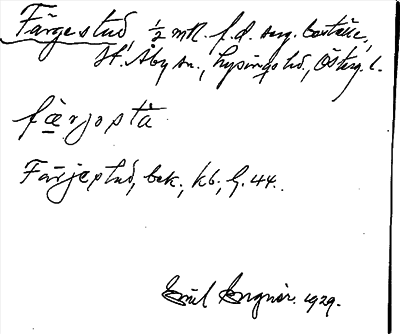 Färgestad, ½ mtl. f.d. serg. boställe,
St. Åby sn., Lysings hd, Österg. l.
fæ̀rjosta
Färjestad, bek., kb., G. 44.
Emil Engner. 1929.